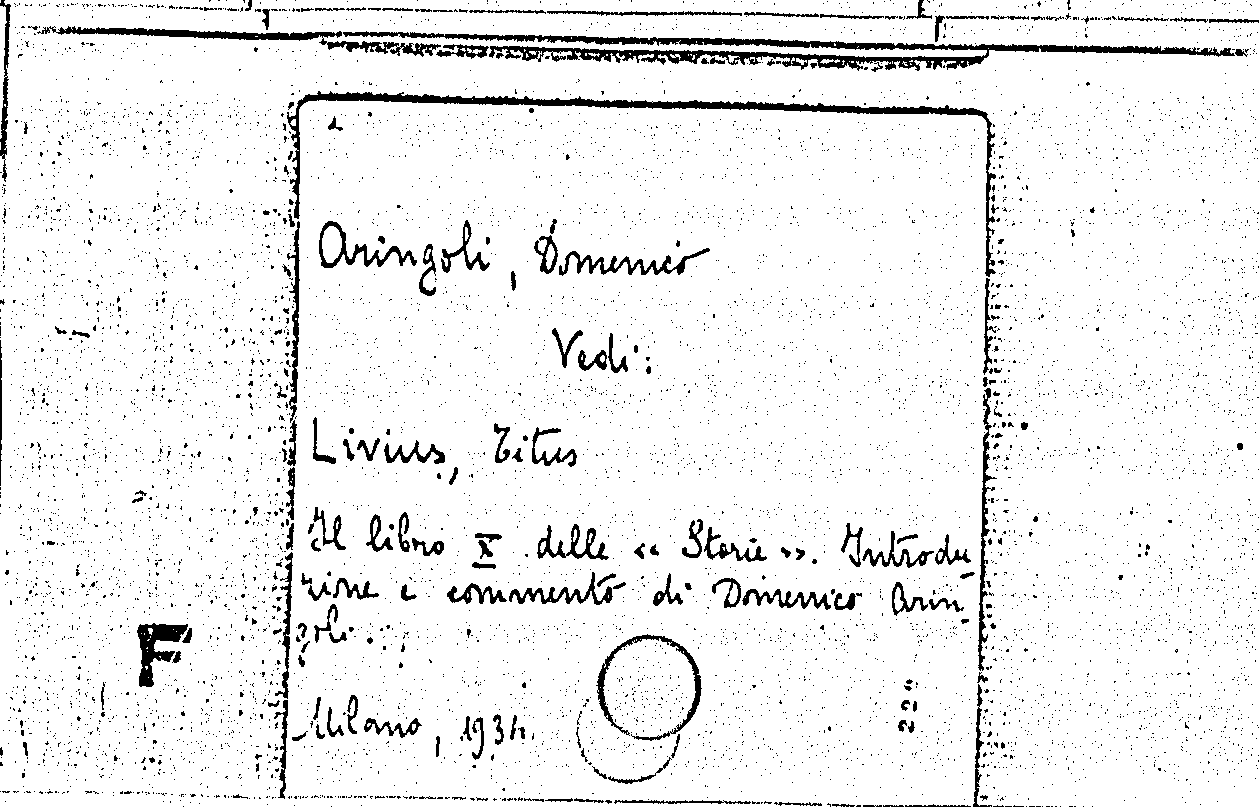 Aringoli, Domenico
Vedi:
Livius, Titus
Il libro X delle « Storie ». Introdu-
zione e commento di Domenico Arin-
goli.
F
Milano, 1934.